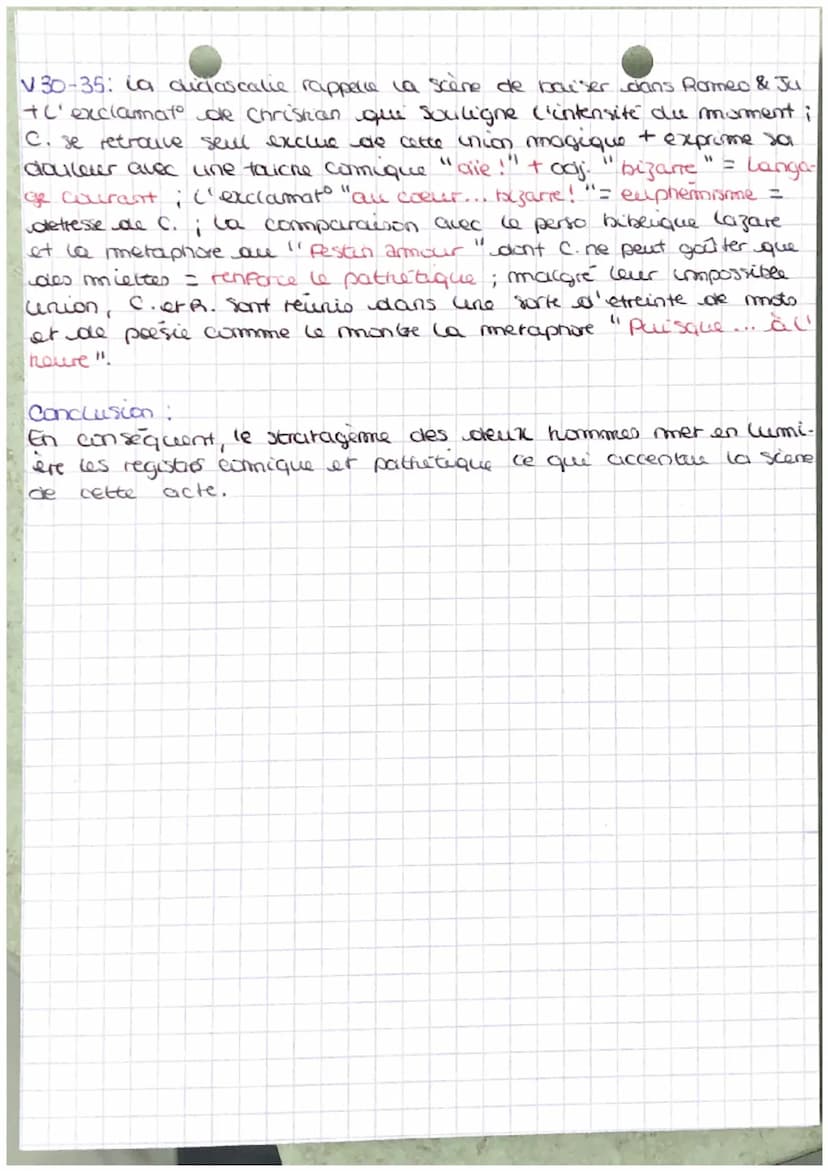 V30-35: la didascalie rappelle la scène de baiser dans Romeo & Ju
+ l'exclamat° de Christian qui souligne l'intensité du moment ;
C. se retrouve seul exclue de cette union magique + exprime sa
douleur avec une touche comique "aïe !" + adj. "bizarre" = langa-
ge courant ; l'exclamat° "au coeur... bizarre ! "= euphémisme =
detresse de C. ; la comparaison avec le perso biblique Lazare
et la métaphore au "festin amour" dont C. ne peut goûter que
des miettes = renforce le pathétique ; malgré leur impossible
union, C. et R. sont réunis dans une sorte d'etreinte de mots
et de poésie comme le montre la metaphore "Puisque ... à l'
heure".
Conclusion :
En conséquent, le stratagème des deux hommes met en lumi-
ère les registres comique et pathétique ce qui accentue la scène
de cette acte.